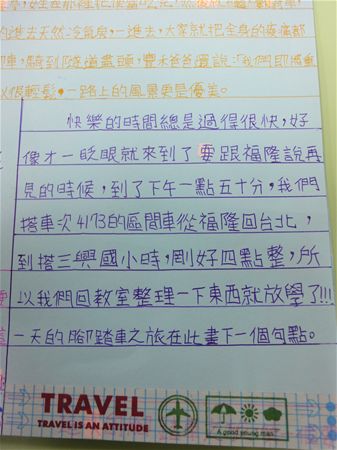 的進去天然冷氣房,一進去,大家就把全身的疲憊都
車,騎到隧道盡頭,豐禾爸爸還說:「我們即將重
以很輕鬆。一路上的風景更是優美。
快樂的時間總是過得很快,好
像才一眨眼就來到了要跟福隆說再
見的時候,到了下午一點五十分,我們
搭車次4173的區間車從福隆回台北,
到搭三興國小時,剛好四點整,所
以我們回教室整理一下東西就放學了!!!
一天的腳踏車之旅在此畫下一個句點。
TRAVEL
TRAVEL IS AN ATTITUDE
A good young man